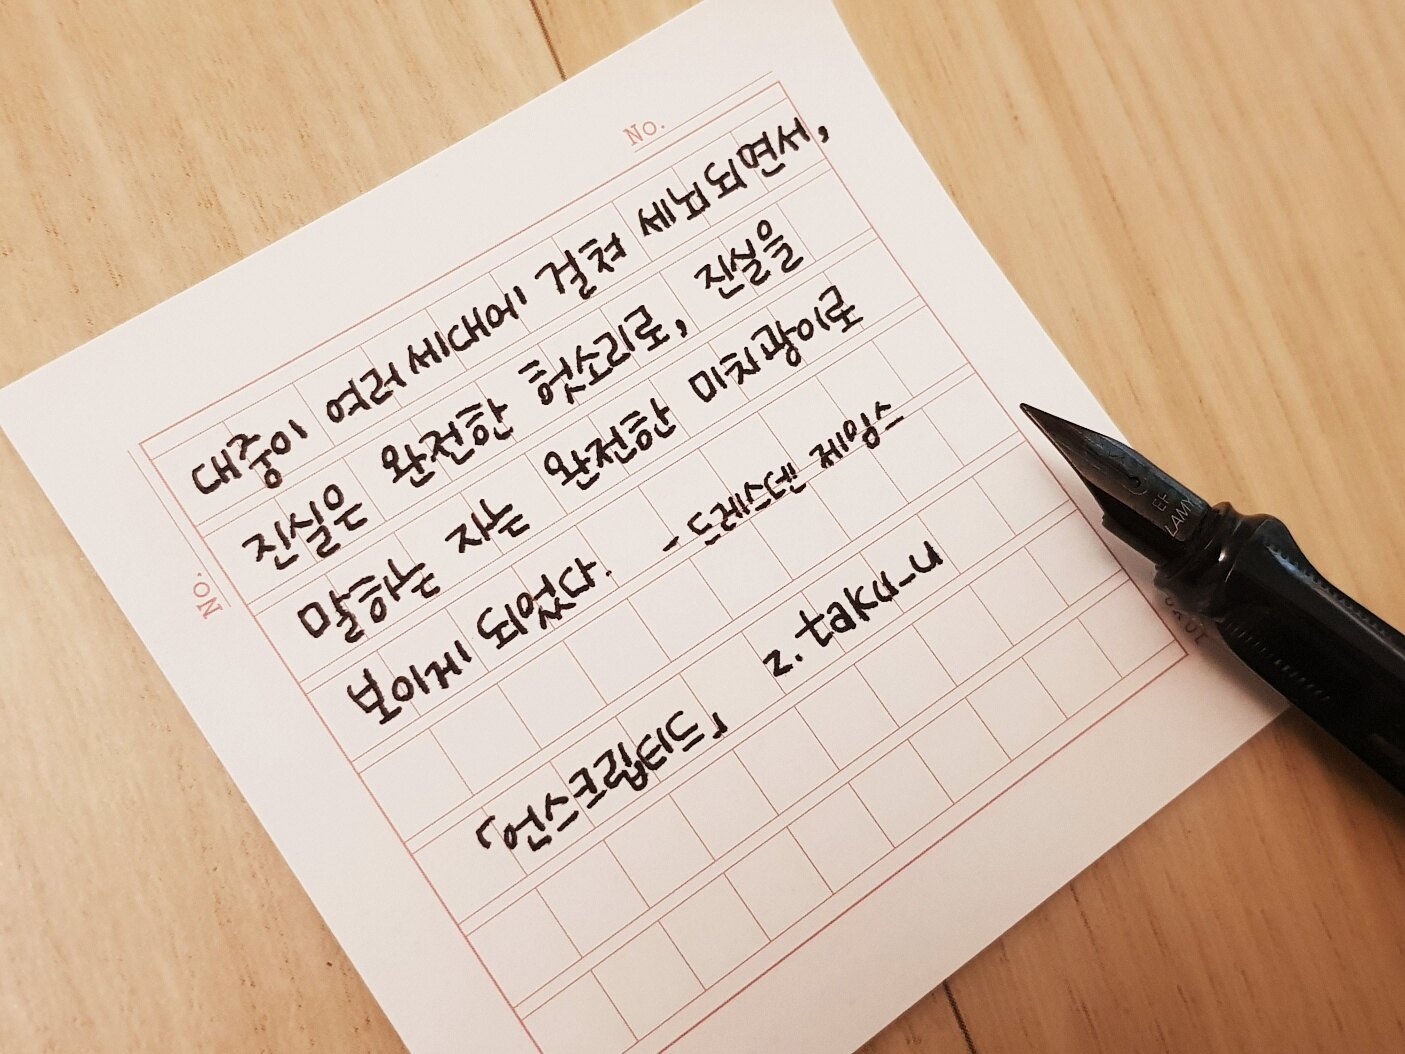 No.
대중이 여러 세대에 걸쳐 세뇌되면서,
진실은 완전한 헛소리로, 진실을
말하는 자는 완전한 미치광이로
보이게 되었다. - 드레스덴 제임스
z. taku_u
「언스크립티드」
No.
EF
LAMY